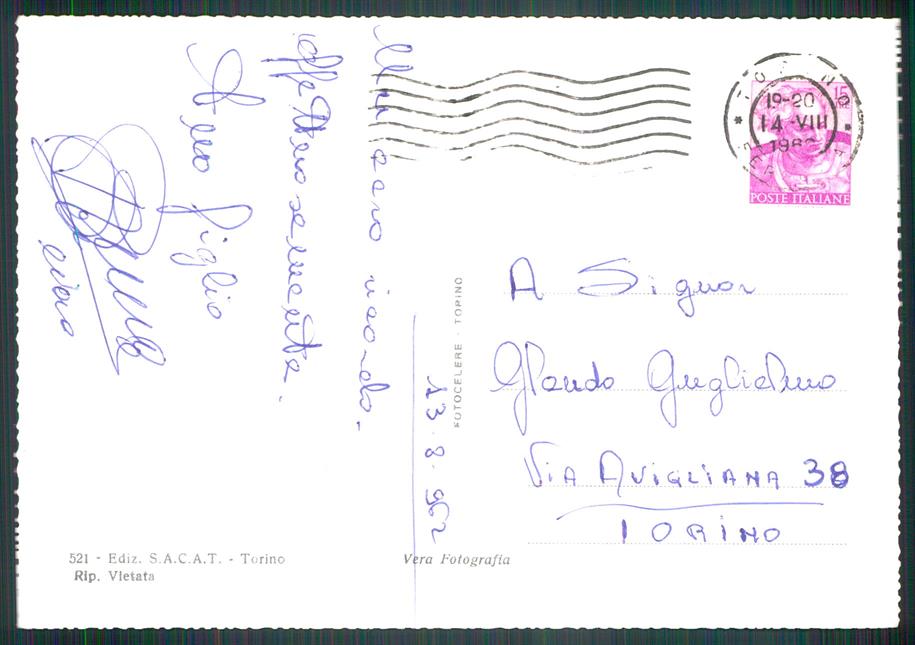 Un caro ricordo.
affettuosamente.
tuo figlio
13-8-962
FOTOCELERE - TORINO
TORINO
19-20
14 VIII
15
POSTE ITALIANE
A Signor
Guglielmo
VIA AVIGLIANA 38
TORINO
521 - Ediz. S.A.C.A.T. - Torino
Rip. Vietata
Vera Fotografia